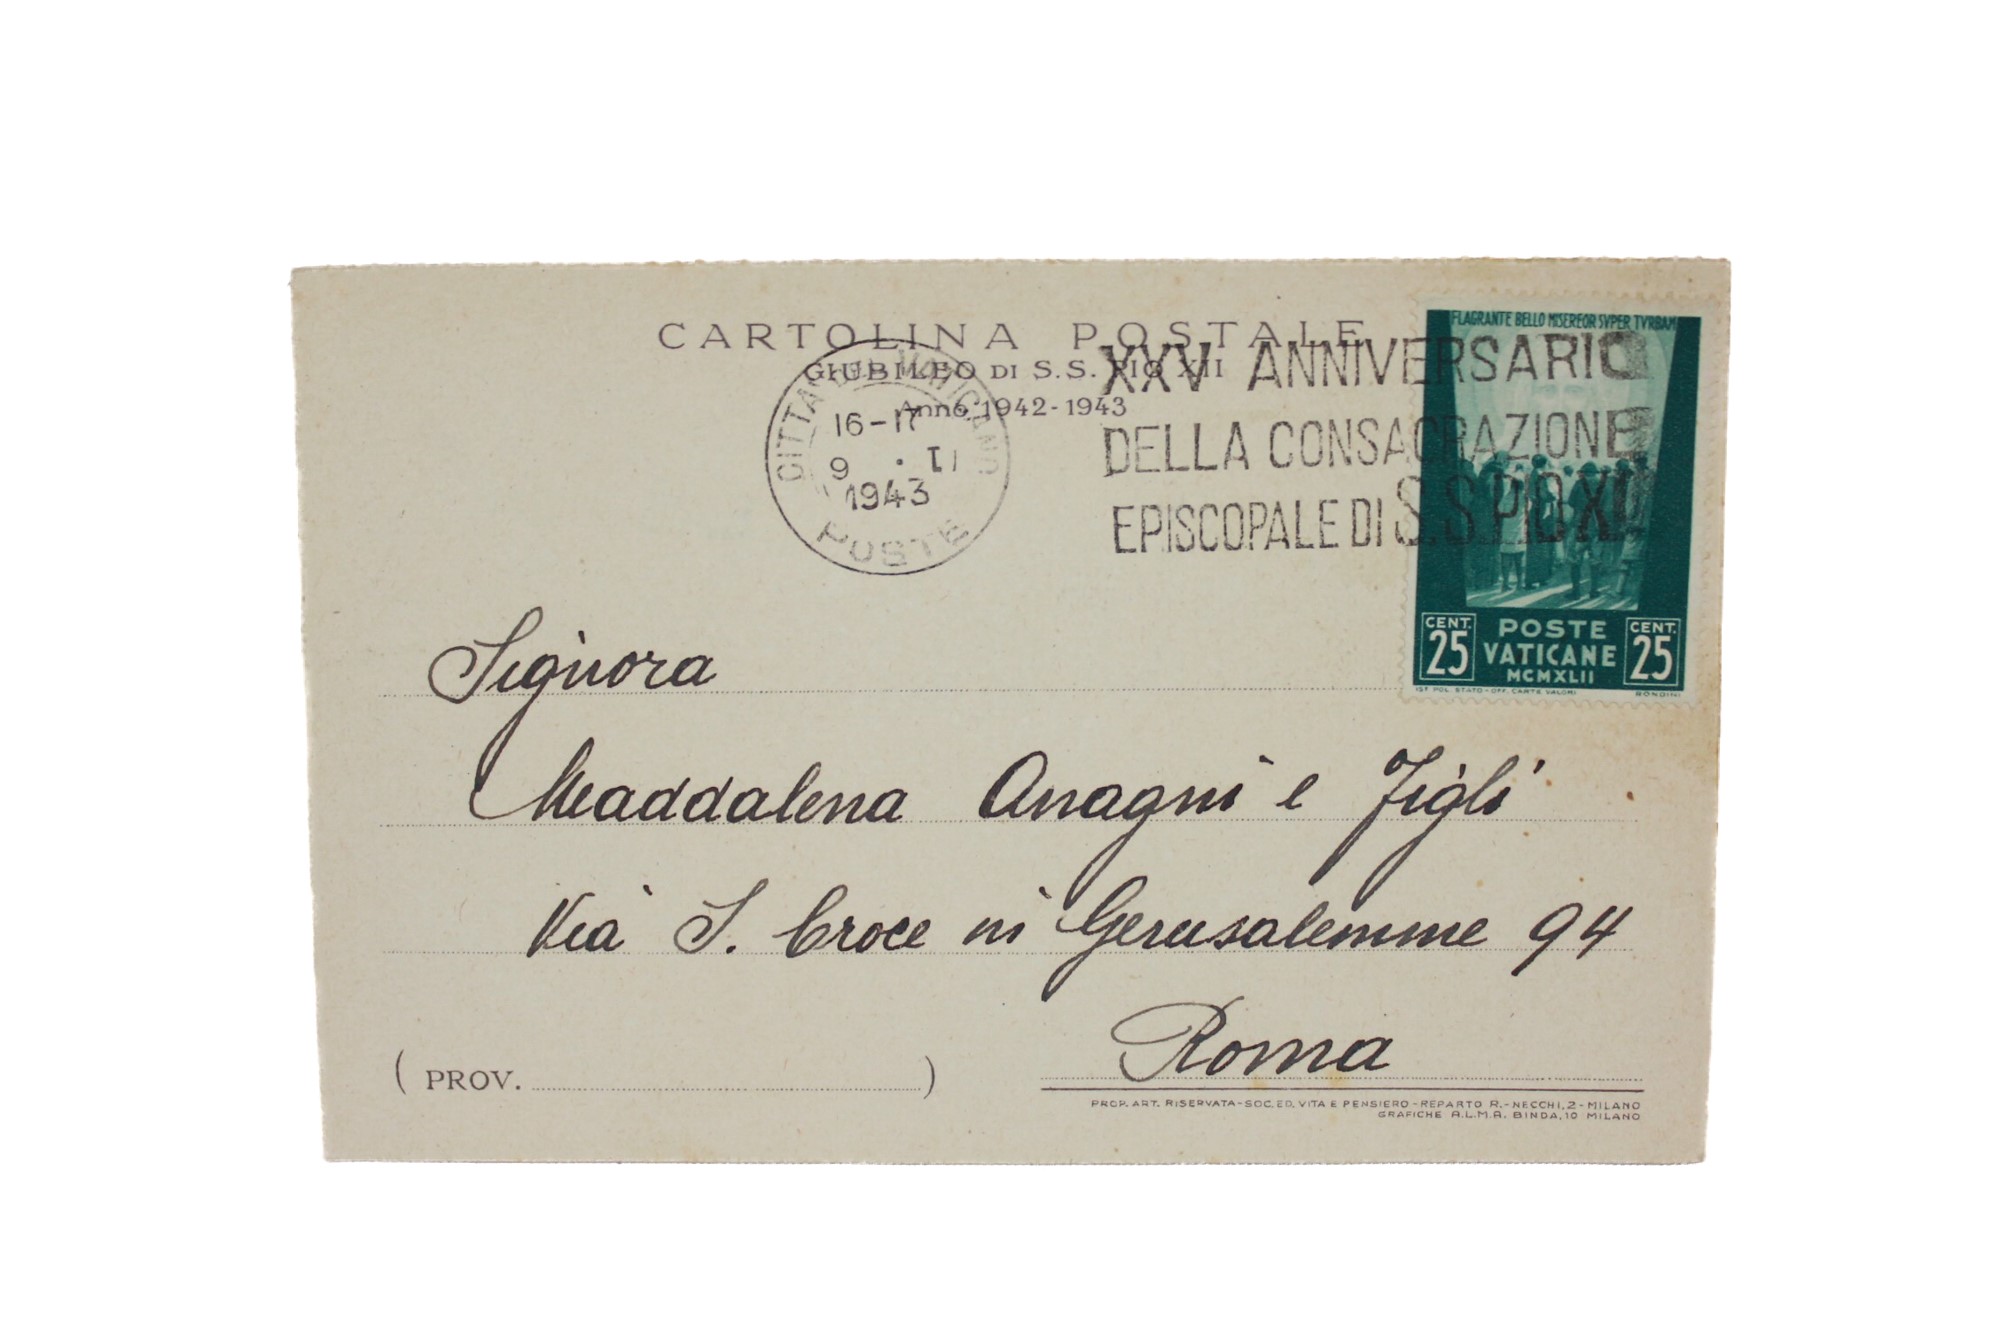 CARTOLINA POSTALE
GIUBILEO DI S.S. PIO XII
Anno 1942-1943
CITTA DEL VATICANO
16-17
9
1943
POSTE
XXV ANNIVERSARIO
DELLA CONSACRAZIONE
EPISCOPALE DI S.S. PIO XII
FLAGRANTE BELLO MISEREOR SVPER TVRBAM
CENT. 25
POSTE
VATICANE
MCMXLII
CENT. 25
IST. POL. STATO-OFF. CARTE VALORI RONDINI
Signora
Maddalena Anagni e Figli
Via S. Croce in Gerusalemme 94
Roma
( PROV. )
PROP. ART. RISERVATA-SOC. ED. VITA E PENSIERO-REPARTO R.-NECCHI, 2-MILANO
GRAFICHE A.L.M.A. BINDA, 10 MILANO